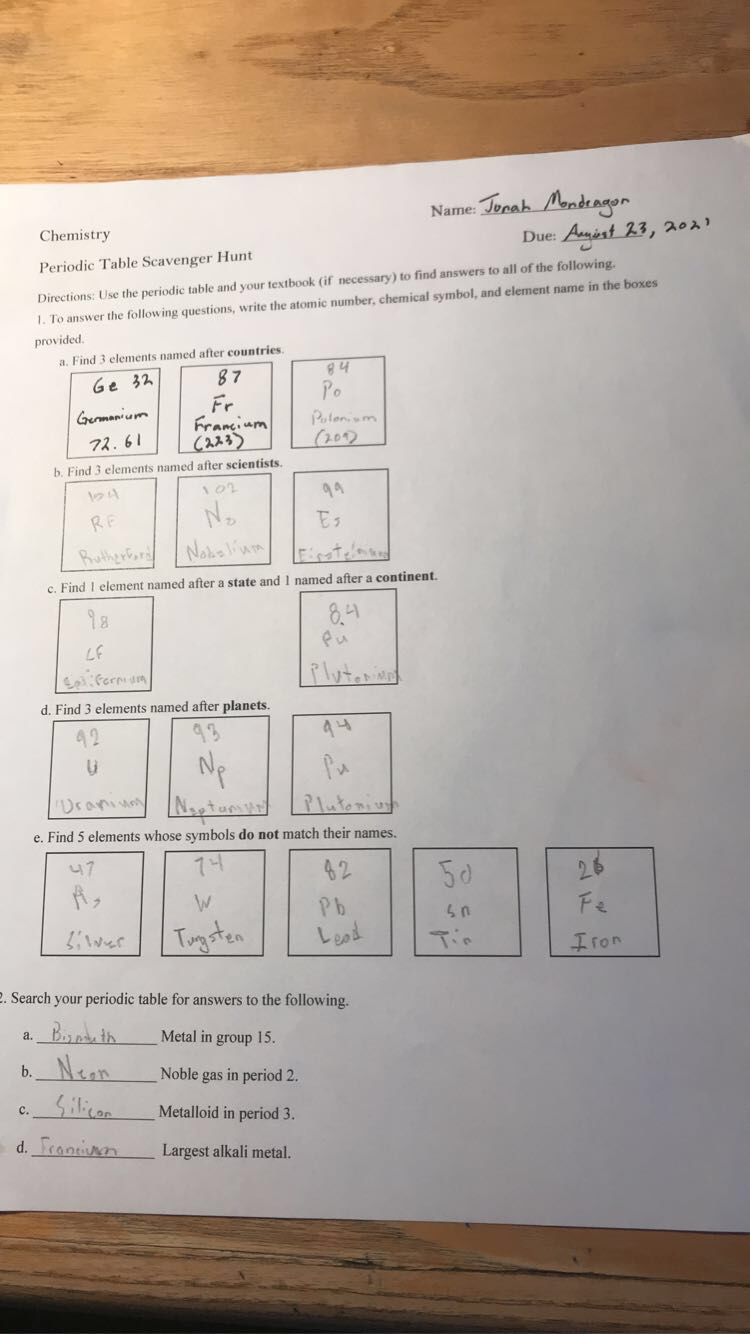 Name: Jonah Mondragon
Chemistry
Due: August 23, 2021
Periodic Table Scavenger Hunt
Directions: Use the periodic table and your textbook (if necessary) to find answers to all of the following.
1. To answer the following questions, write the atomic number, chemical symbol, and element name in the boxes
provided.
a. Find 3 elements named after countries.
Ge 32
Germanium
72.61
87
Fr
Francium
(223)
84
Po
Polonium
(209)
b. Find 3 elements named after scientists.
104
RF
Rutherford
102
No
Nobelium
99
Es
Einsteinium
c. Find 1 element named after a state and 1 named after a continent.
98
CF
Californium
84
Pu
Plutonium
d. Find 3 elements named after planets.
92
U
Uranium
93
Np
Neptunium
94
Pu
Plutonium
e. Find 5 elements whose symbols do not match their names.
47
Ag
Silver
74
W
Tungsten
82
Pb
Lead
50
Sn
Tin
26
Fe
Iron
2. Search your periodic table for answers to the following.
a. Bismuth Metal in group 15.
b. Neon Noble gas in period 2.
c. Silicon Metalloid in period 3.
d. Francium Largest alkali metal.